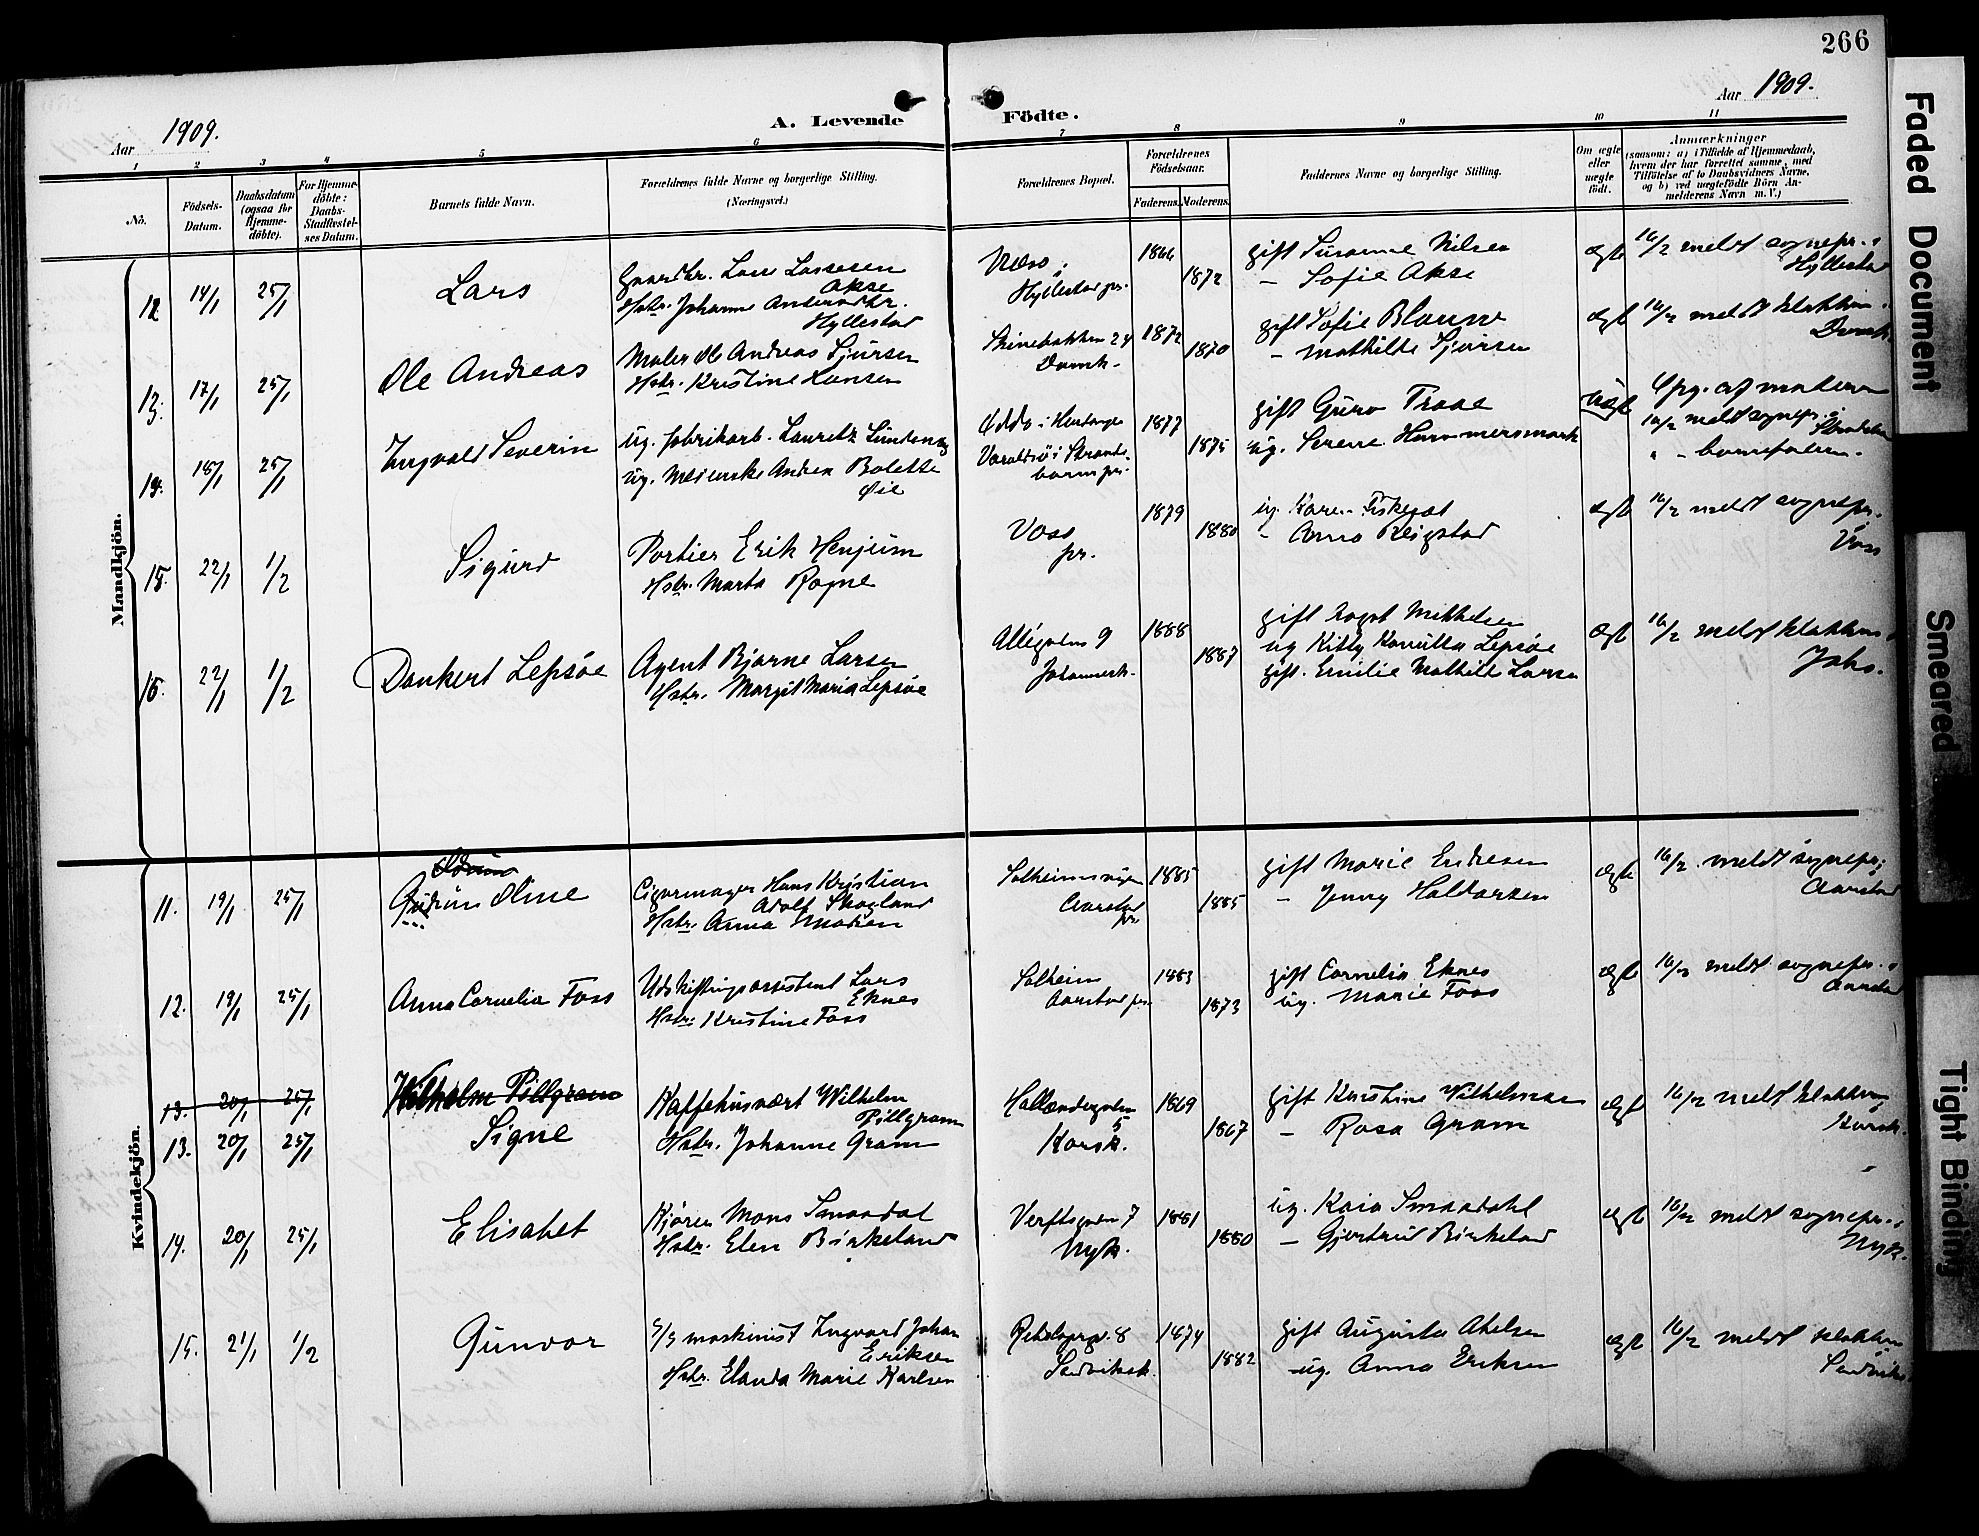 266
Aar 1909.
A. Levende Födte.
Aar 1909.
1 2 3 4 5 6 7 8 9 10 11
No.
Födsels-Datum.
Daabsdatum (ogsaa for Hjemme-döbte).
For Hjemme-döbte: Daabs-Stadfæstel-ses Datum.
Barnets fulde Navn.
Forældrenes fulde Navne og borgerlige Stilling.
(Næringsvei.)
Forældrenes Bopæl.
Forældrenes Födselsaar.
Faderens. Moderens.
Faddernes Navne og borgerlige Stilling.
Om ægte eller uægte födt.
Anmærkninger
(saasom: a) i Tilfælde af Hjemmedaab, hvem der har forrettet samme, med Tilföielse af to Daabsvidners Navne, og b) ved uægtefödte Börn Anmelderens Navn m. V.)
Mandkjön.
12. 14/1 25/1 Lars
Gaardbr. Lars Lassesen
Akse
Hstr. Johanne Andersdtr.
Hyllestad
Hyllestad pr.
1866 1872
gift Susanne Nilsen
- Sofie Akse
ægte 16/2 meldt sognepr. i
Hyllestad
13. 17/1 25/1 Ole Andreas
Maler Ole Andreas Sjursen
Hstr. Kristine Hansen
Steinebakken 24
Domk.
1872 1870
gift Sofie Blaune
- Mathilde Sjursen
ægte 16/2 meldt klokkeren i
Domk.
14. 18/1 25/1 Ingvald Severin
ug. fabrikarb. Lauritz
ug. Andrea Bolette
Øie
Odda i Hardanger
Varaldsø i Strande-
barm pr.
1877 1875
gift Guro Traae
ug. Serene Hammersmark
uægte Opg. af moderen
16/2 meldt sognepr. i
" - barnefaderen.
15. 22/1 1/2 Sigurd
Portier Erik Henjum
Hstr. Marta Rogne
Voss
pr.
1879 1880
ug. Karen Fiskesæt
- Anna Reigstad
ægte 16/2 meldt sognepr. i
Voss
16. 22/1 1/2 Dankert Lepsøe
Agent Bjarne Larsen
Hstr. Margit Maria Lepsøe
Allégaten 9
Johannesk.
1888 1887
gift Aagot Mikkelsen
ug Kitty Kamilla Lepsøe
gift. Emilie Mathilde Larsen
ægte 16/2 meldt klokkeren i
Johs.
Kvindekjön.
11. 19/1 25/1 Gudrun Oline
Cigarmager Hans Kristian
Adolf Skogland
Hstr. Anna Madsen
Solheimsviken
Aarstad
pr.
1885 1885
gift Marie Endresen
- Jenny Haldorsen
ægte 16/2 meldt sognepr. i
Aarstad
12. 19/1 25/1 Anna Cornelia Foss
Udskiftningsassistent Lars
Eknes
Hstr. Kristine Foss
Solheim
Aarstad pr.
1883 1873
gift Cornelia Eknes
ug. Marie Foss
ægte 16/2 meldt sognepr. i
Aarstad
13. 20/1 25/1 Wilhelm Pillgram
13. 20/1 25/1 Signe
Kaffehusvært Wilhelm
Pillgram
Hstr. Johanne Gram
Hollændergaten 5
Korsk.
1869 1867
gift Kirstine Wilhelmsen
- Rosa Gram
ægte 16/2 meldt klokkeren i
Korsk.
14. 20/1 25/1 Elisabet
Kjører Mons Smaadal
Hstr. Elen Birkeland
Verftsgaten 7
Nyk.
1881 1880
ug. Kaia Smaadahl
- Gjertrud Birkeland
ægte 16/2 meldt sognepr. i
Nyk.
15. 21/1 1/2 Gunvor
s/s maskinist Ingvard Johan
Eriksen
Hstr. Elanda Marie Karlsen
8
Sandviksk.
1874 1882
gift Augusta Akelsen
ug. Anna Eriksen
ægte 16/2 meldt klokkeren i
Sandviks.
Faded Document
Smeared
Tight Binding